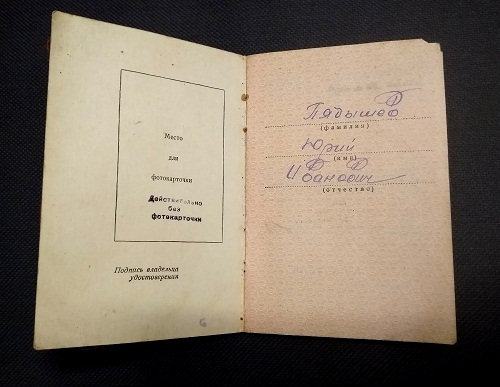 Место
для
фотокарточки
Действительно
без
фотокарточки
Подпись владельца
удостоверения
Пядышев
(фамилия)
Юрий
(имя)
Иванович
(отчество)